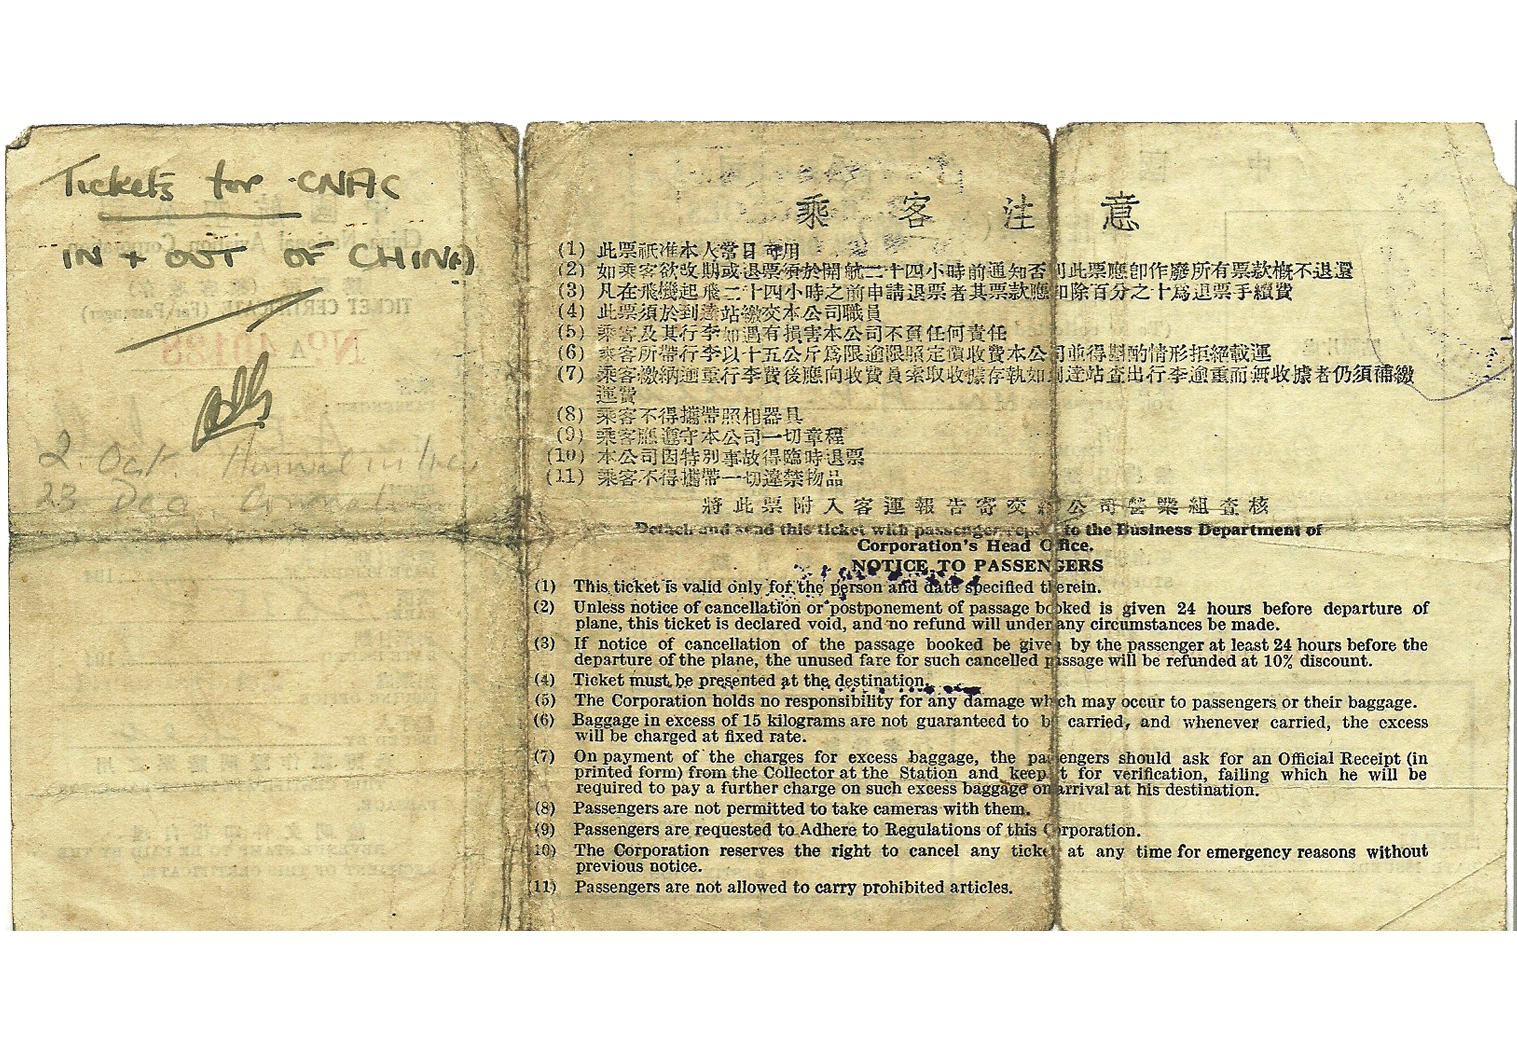 Tickets for CNAC
IN + OUT OF CHINA)
2 Oct.
23 Dec
乘客注意
(1) 此票祇准本人當日可用
(2) 如乘客欲改期或退票須於開航二十四小時前通知否則此票應卽作廢所有票款槪不退還
(3) 凡在飛機起飛二十四小時之前申請退票者其票款應扣除百分之十爲退票手續費
(4) 此票須於到達站繳交本公司職員
(5) 乘客及其行李如遇有損害本公司不負任何責任
(6) 乘客所帶行李以十五公斤爲限逾限照定價收費本公司並得斟酌情形拒絕載運
(7) 乘客繳納逾重行李費後應向收費員索取收據存執如到達站查出行李逾重而無收據者仍須補繳
運費
(8) 乘客不得攜帶照相器具
(9) 乘客應遵守本公司一切章程
(10) 本公司因特別事故得臨時退票
(11) 乘客不得攜帶一切違禁物品
將此票附入客運報告寄交公司營業組查核
Detach and send this ticket with passenger report to the Business Department of
Corporation's Head Office.
NOTICE TO PASSENGERS
(1) This ticket is valid only for the person and date specified therein.
(2) Unless notice of cancellation or postponement of passage booked is given 24 hours before departure of
plane, this ticket is declared void, and no refund will under any circumstances be made.
(3) If notice of cancellation of the passage booked be given by the passenger at least 24 hours before the
departure of the plane, the unused fare for such cancelled passage will be refunded at 10% discount.
(4) Ticket must be presented at the destination.
(5) The Corporation holds no responsibility for any damage which may occur to passengers or their baggage.
(6) Baggage in excess of 15 kilograms are not guaranteed to be carried, and whenever carried, the excess
will be charged at fixed rate.
(7) On payment of the charges for excess baggage, the passengers should ask for an Official Receipt (in
printed form) from the Collector at the Station and keep it for verification, failing which he will be
required to pay a further charge on such excess baggage on arrival at his destination.
(8) Passengers are not permitted to take cameras with them.
(9) Passengers are requested to Adhere to Regulations of this Corporation.
(10) The Corporation reserves the right to cancel any ticket at any time for emergency reasons without
previous notice.
(11) Passengers are not allowed to carry prohibited articles.